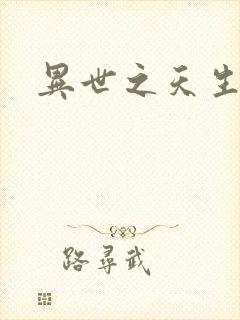 異世之天生
路尋武